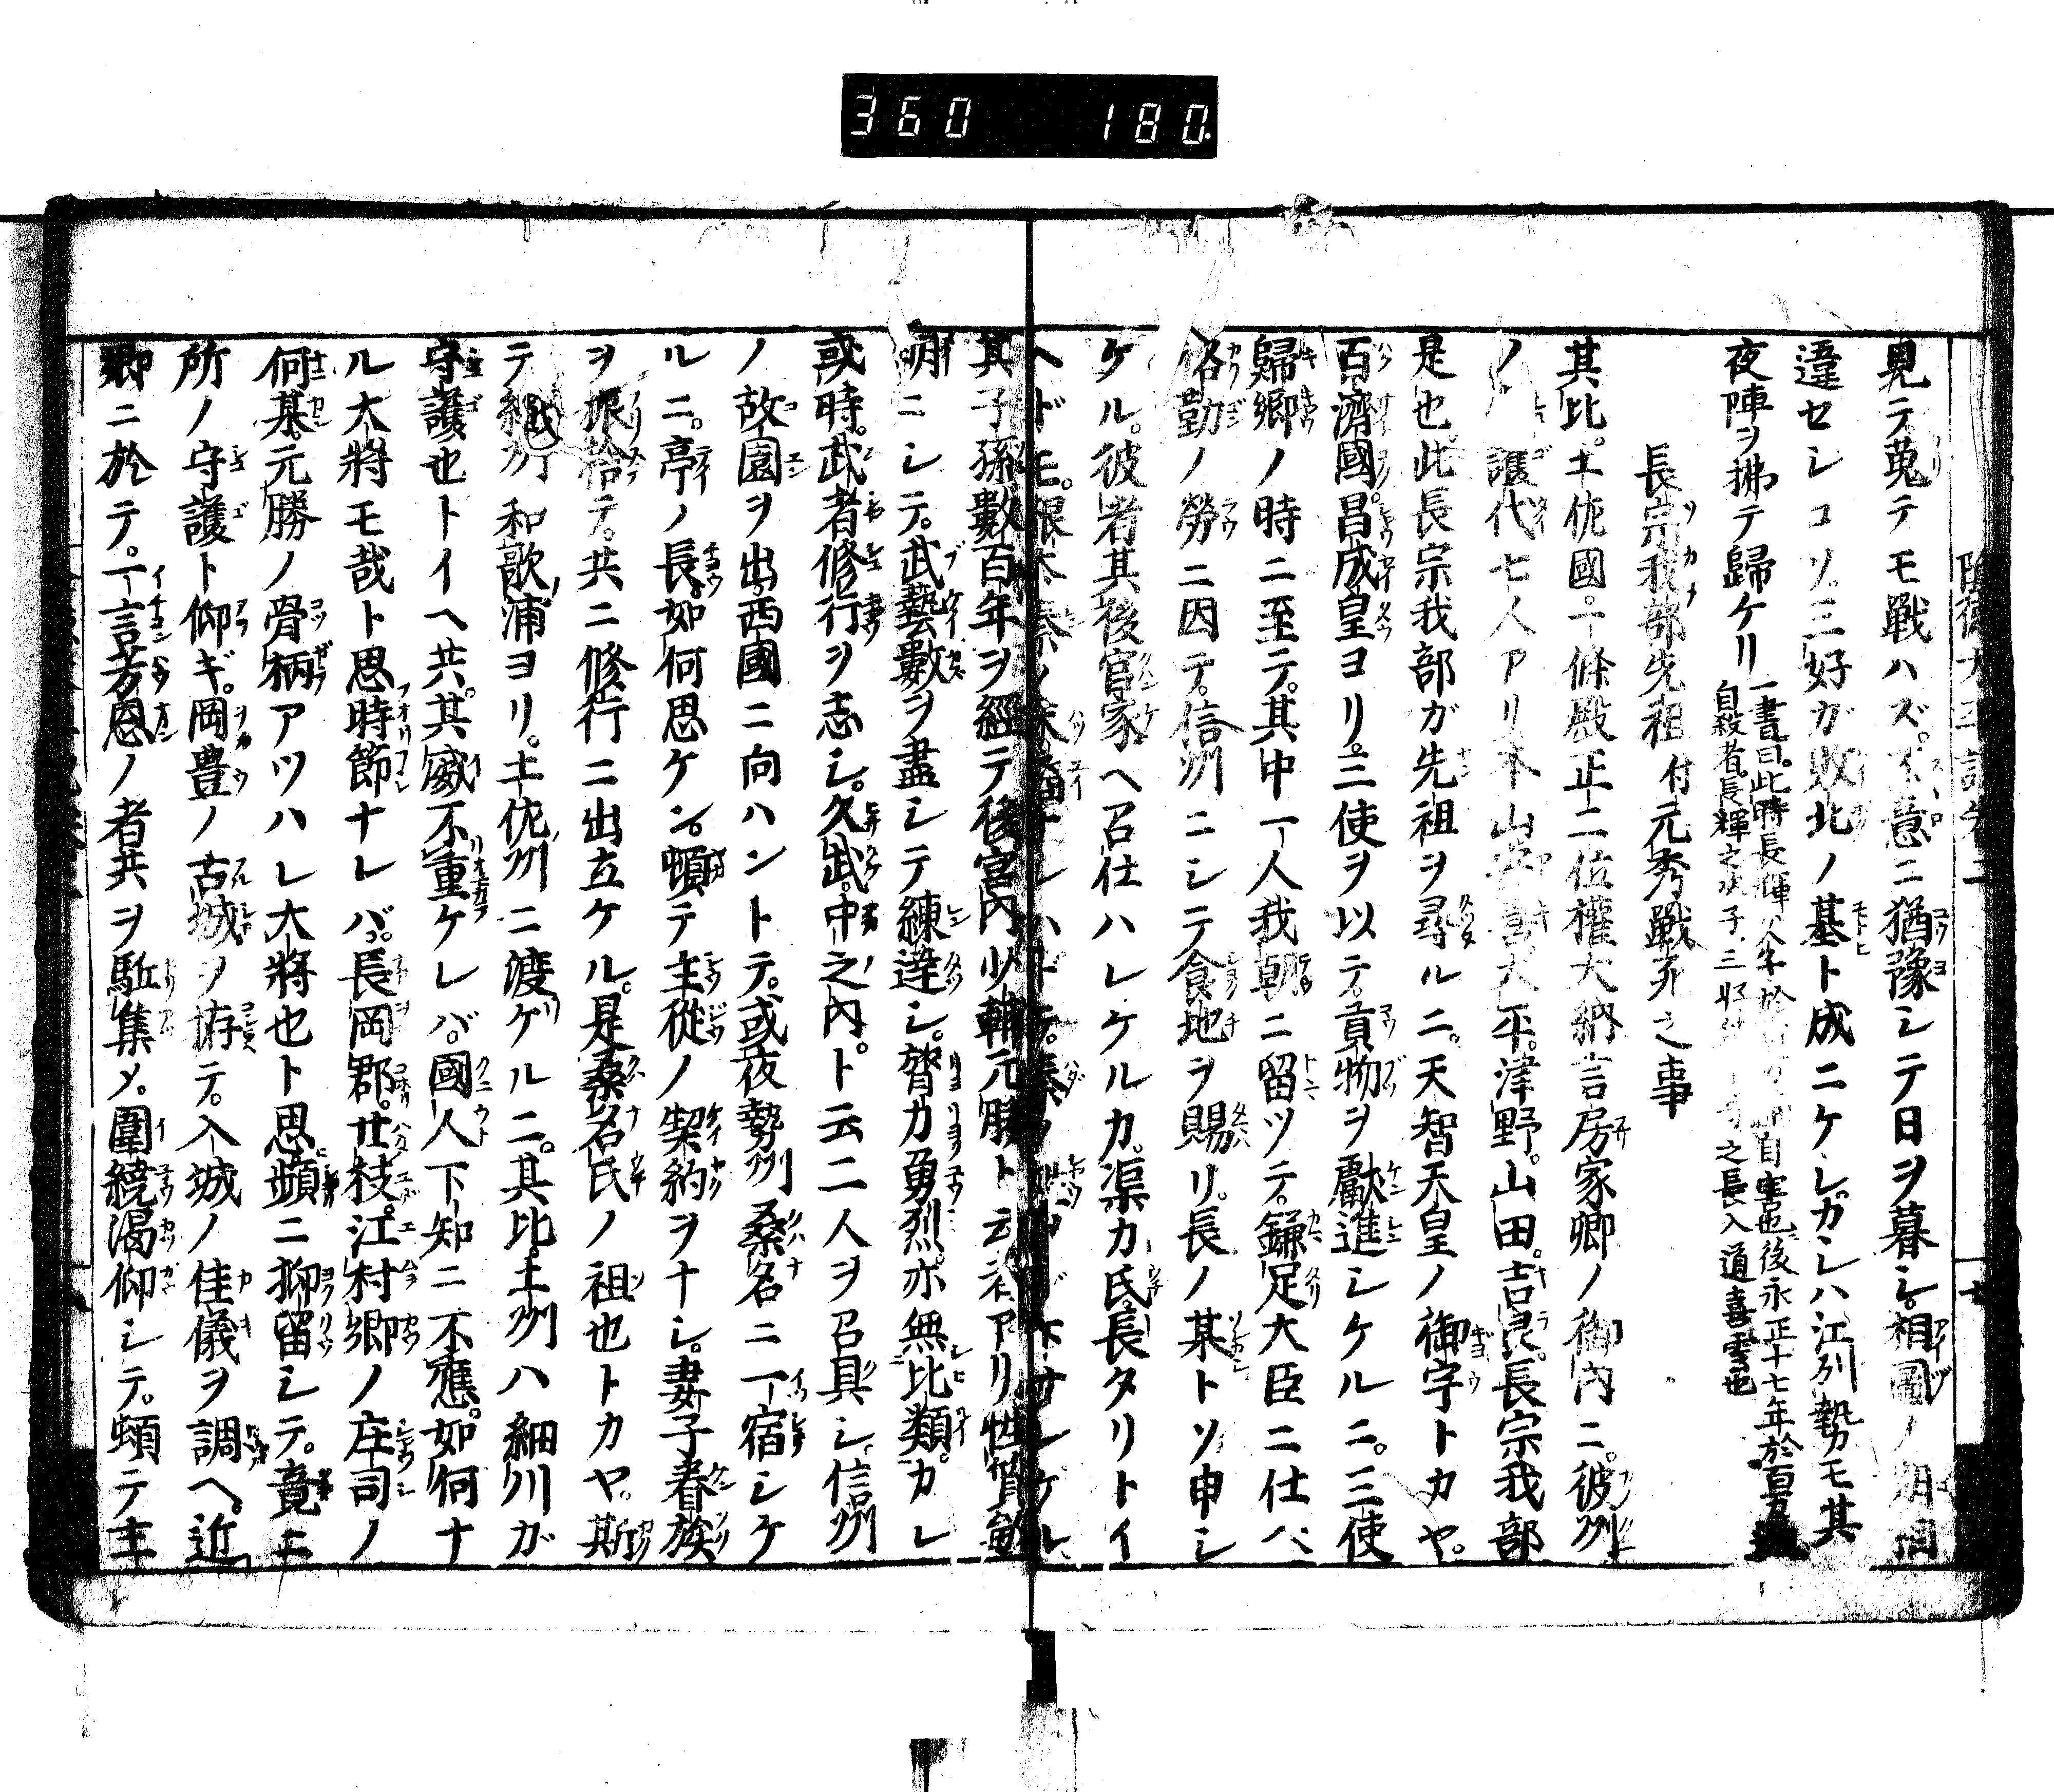 360 180.
見テ蒐テモ戰ハズ。不意ニ猶豫シテ日ヲ暮シ。相圖ノ
違セシコソ。三好ガ敗北ノ基ト成ニケレ。ガシハ江列勢モ其
夜陣ヲ拂テ歸ケリ
一書曰。此時長輝 自害也。後永正十七年於百万
自殺者。長輝之次子。三好 之長入道喜雲也
長宗我部先祖 付元秀戰死之事
其比。土佐國。一條殿正二位權大納言房家卿ノ御内ニ。彼州
ノ 護代七人アリ 大平。津野。山田。吉良。長宗我部
是也。此長宗我部ガ先祖ヲ尋ルニ。天智天皇ノ御宇トカヤ。
百濟國。昌成皇ヨリ。三使ヲ以テ。貢物ヲ獻進シケルニ。三使
歸郷ノ時ニ至テ。其中一人我朝ニ留ツテ。鎌足大臣ニ仕ヘ、
恪勤ノ勞ニ因テ。信州ニシテ食地ヲ賜リ。長ノ某トソ申シ
ケル。彼者其後官家ヘ召仕ハレケルカ。渠カ氏。長タリトイ
ヘドモ。根本秦ノ
其子孫數百年ヲ經テ後宮内少輔元勝ト云者アリ性質敏
明ニシテ。武藝數ヲ盡シテ練達シ。膂力勇烈。亦無比類。カレ
或時。武者修行ヲ志シ。久武。中之内。ト云二人ヲ召具シ。信州
ノ故園ヲ出。西國ニ向ハントテ。或夜勢州桑名ニ一宿シケ
ルニ。亭ノ長。如何思ケン。頓テ主從ノ契約ヲナシ。妻子眷族
ヲ振捨テ。共ニ修行ニ出立ケル。是桑名氏ノ祖也トカヤ。斯
テ紀州和歌浦ヨリ。土佐州ニ渡ゲルニ。其比土州ハ細川ガ
守護也トイヘ共。其威不重ケレバ。國人下知ニ不應。如何ナ
ル大將モ哉ト思時節ナレバ。長岡郡。廿枝。江村郷ノ庄司ノ
何某。元勝ノ骨柄アツハレ大將也ト思。頻ニ抑留シテ。竟ニ
所ノ守護ト仰ギ。岡豊ノ古城ヲ拵テ。入城ノ佳儀ヲ調ヘ。近
郷ニ於テ。一言芳恩ノ者共ヲ駈集メ。圍繞渇仰シテ。頓テ主